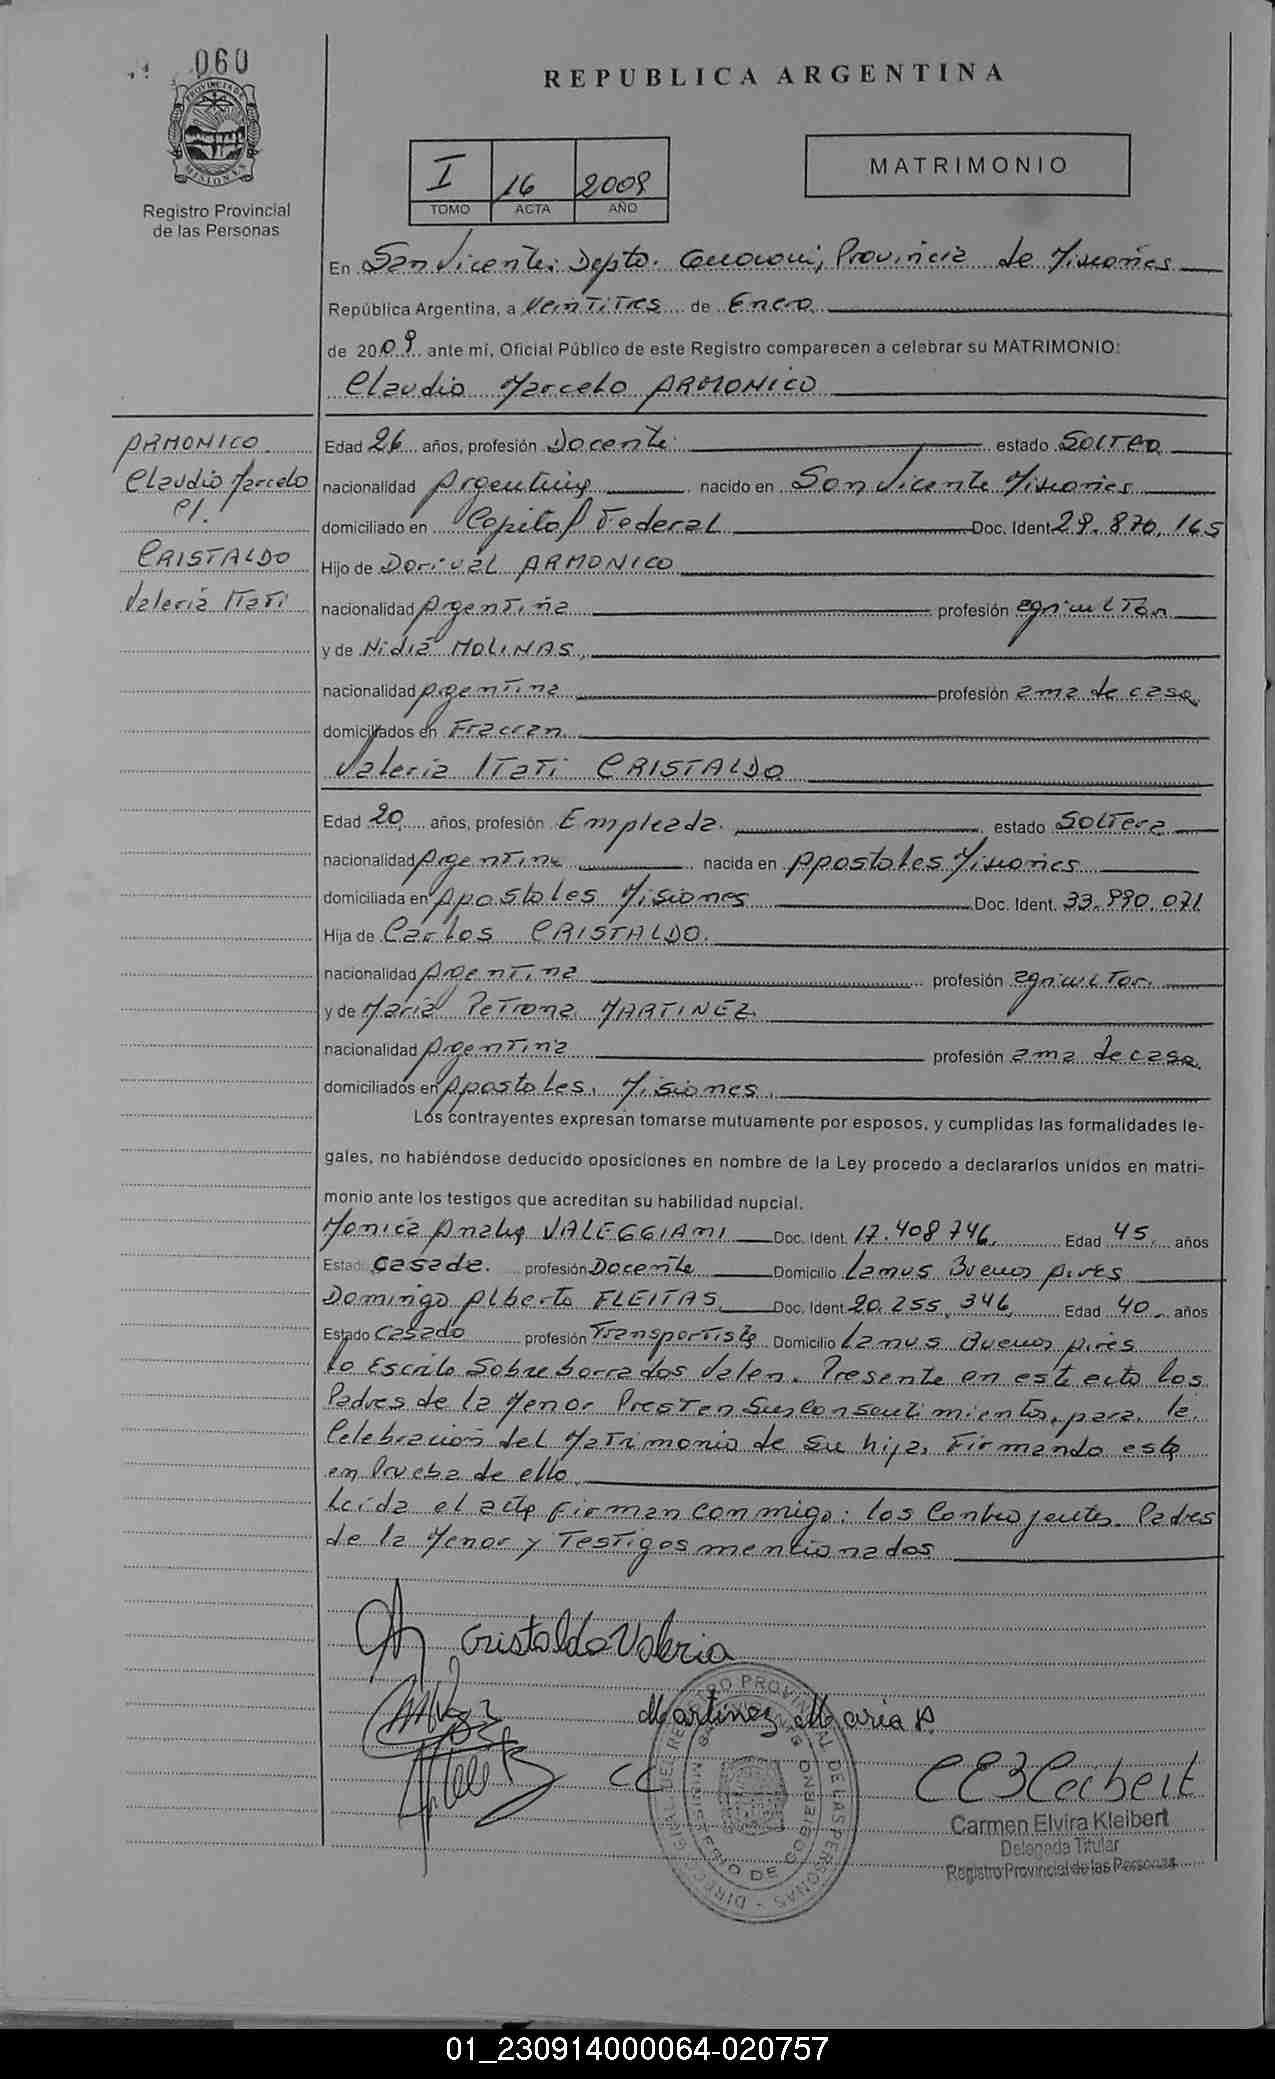 060
PROVINCIA DE
MISIONES
Registro Provincial
de las Personas
REPUBLICA ARGENTINA
I 16 2009
TOMO ACTA AÑO
MATRIMONIO
En San Vicente; Depto. Guaraní; Provincia de Misiones
República Argentina, a veintitres de Enero
de 2009 ante mí, Oficial Público de este Registro comparecen a celebrar su MATRIMONIO:
Claudio Marcelo ARMONICO
ARMONICO
Claudio Marcelo
c/.
CRISTALDO
Valeria Itati
Edad 26 años, profesión Docente estado Soltero
nacionalidad Argentina nacido en San Vicente Misiones
domiciliado en Capital Federal Doc. Ident. 29.870.165
Hijo de Dorival ARMONICO
nacionalidad Argentina profesión agricultor
y de Nidia MOLINAS
nacionalidad Argentina profesión ama de casa
domiciliados en Fracran
Valeria Itati CRISTALDO
Edad 20 años, profesión Empleada. estado Soltera
nacionalidad Argentina nacida en Apostoles Misiones
domiciliada en Apostoles Misiones Doc. Ident. 33.990.071
Hija de Carlos CRISTALDO.
nacionalidad Argentina profesión agricultor.
y de Maria Petrona MARTINEZ
nacionalidad Argentina profesión ama de casa
domiciliados en Apostoles, Misiones.
Los contrayentes expresan tomarse mutuamente por esposos, y cumplidas las formalidades le-
gales, no habiéndose deducido oposiciones en nombre de la Ley procedo a declararlos unidos en matri-
monio ante los testigos que acreditan su habilidad nupcial.
Monica Analia VALEGGIANI Doc. Ident. 17.408.746. Edad 45 años
Estado casada. profesión Docente Domicilio Lanus Buenos Aires
Domingo Alberto FLEITAS Doc. Ident 20.255.346 Edad 40 años
Estado Casado profesión Transportista Domicilio Lanus Buenos Aires
lo Escrito Sobre borrados Valen. Presente en este acto los
Padres de la Menor Prestan Su Consentimiento, para la
Celebracion del Matrimonio de su hija, Firmando esta
en Prueba de ello
Leida el acta firman conmigo: los Contrayentes, Padres
de la Menor y Testigos mencionados
Cristaldo Valeria
Martinez Maria P.
CC
CEKleibert
Carmen Elvira Kleibert
Delegada Titular
Registro Provincial de las Personas
DEL REGISTRO PROVINCIAL DE LAS PERSONAS - DIRECC
MINISTERIO DE GOBIERNO
01_230914000064-020757